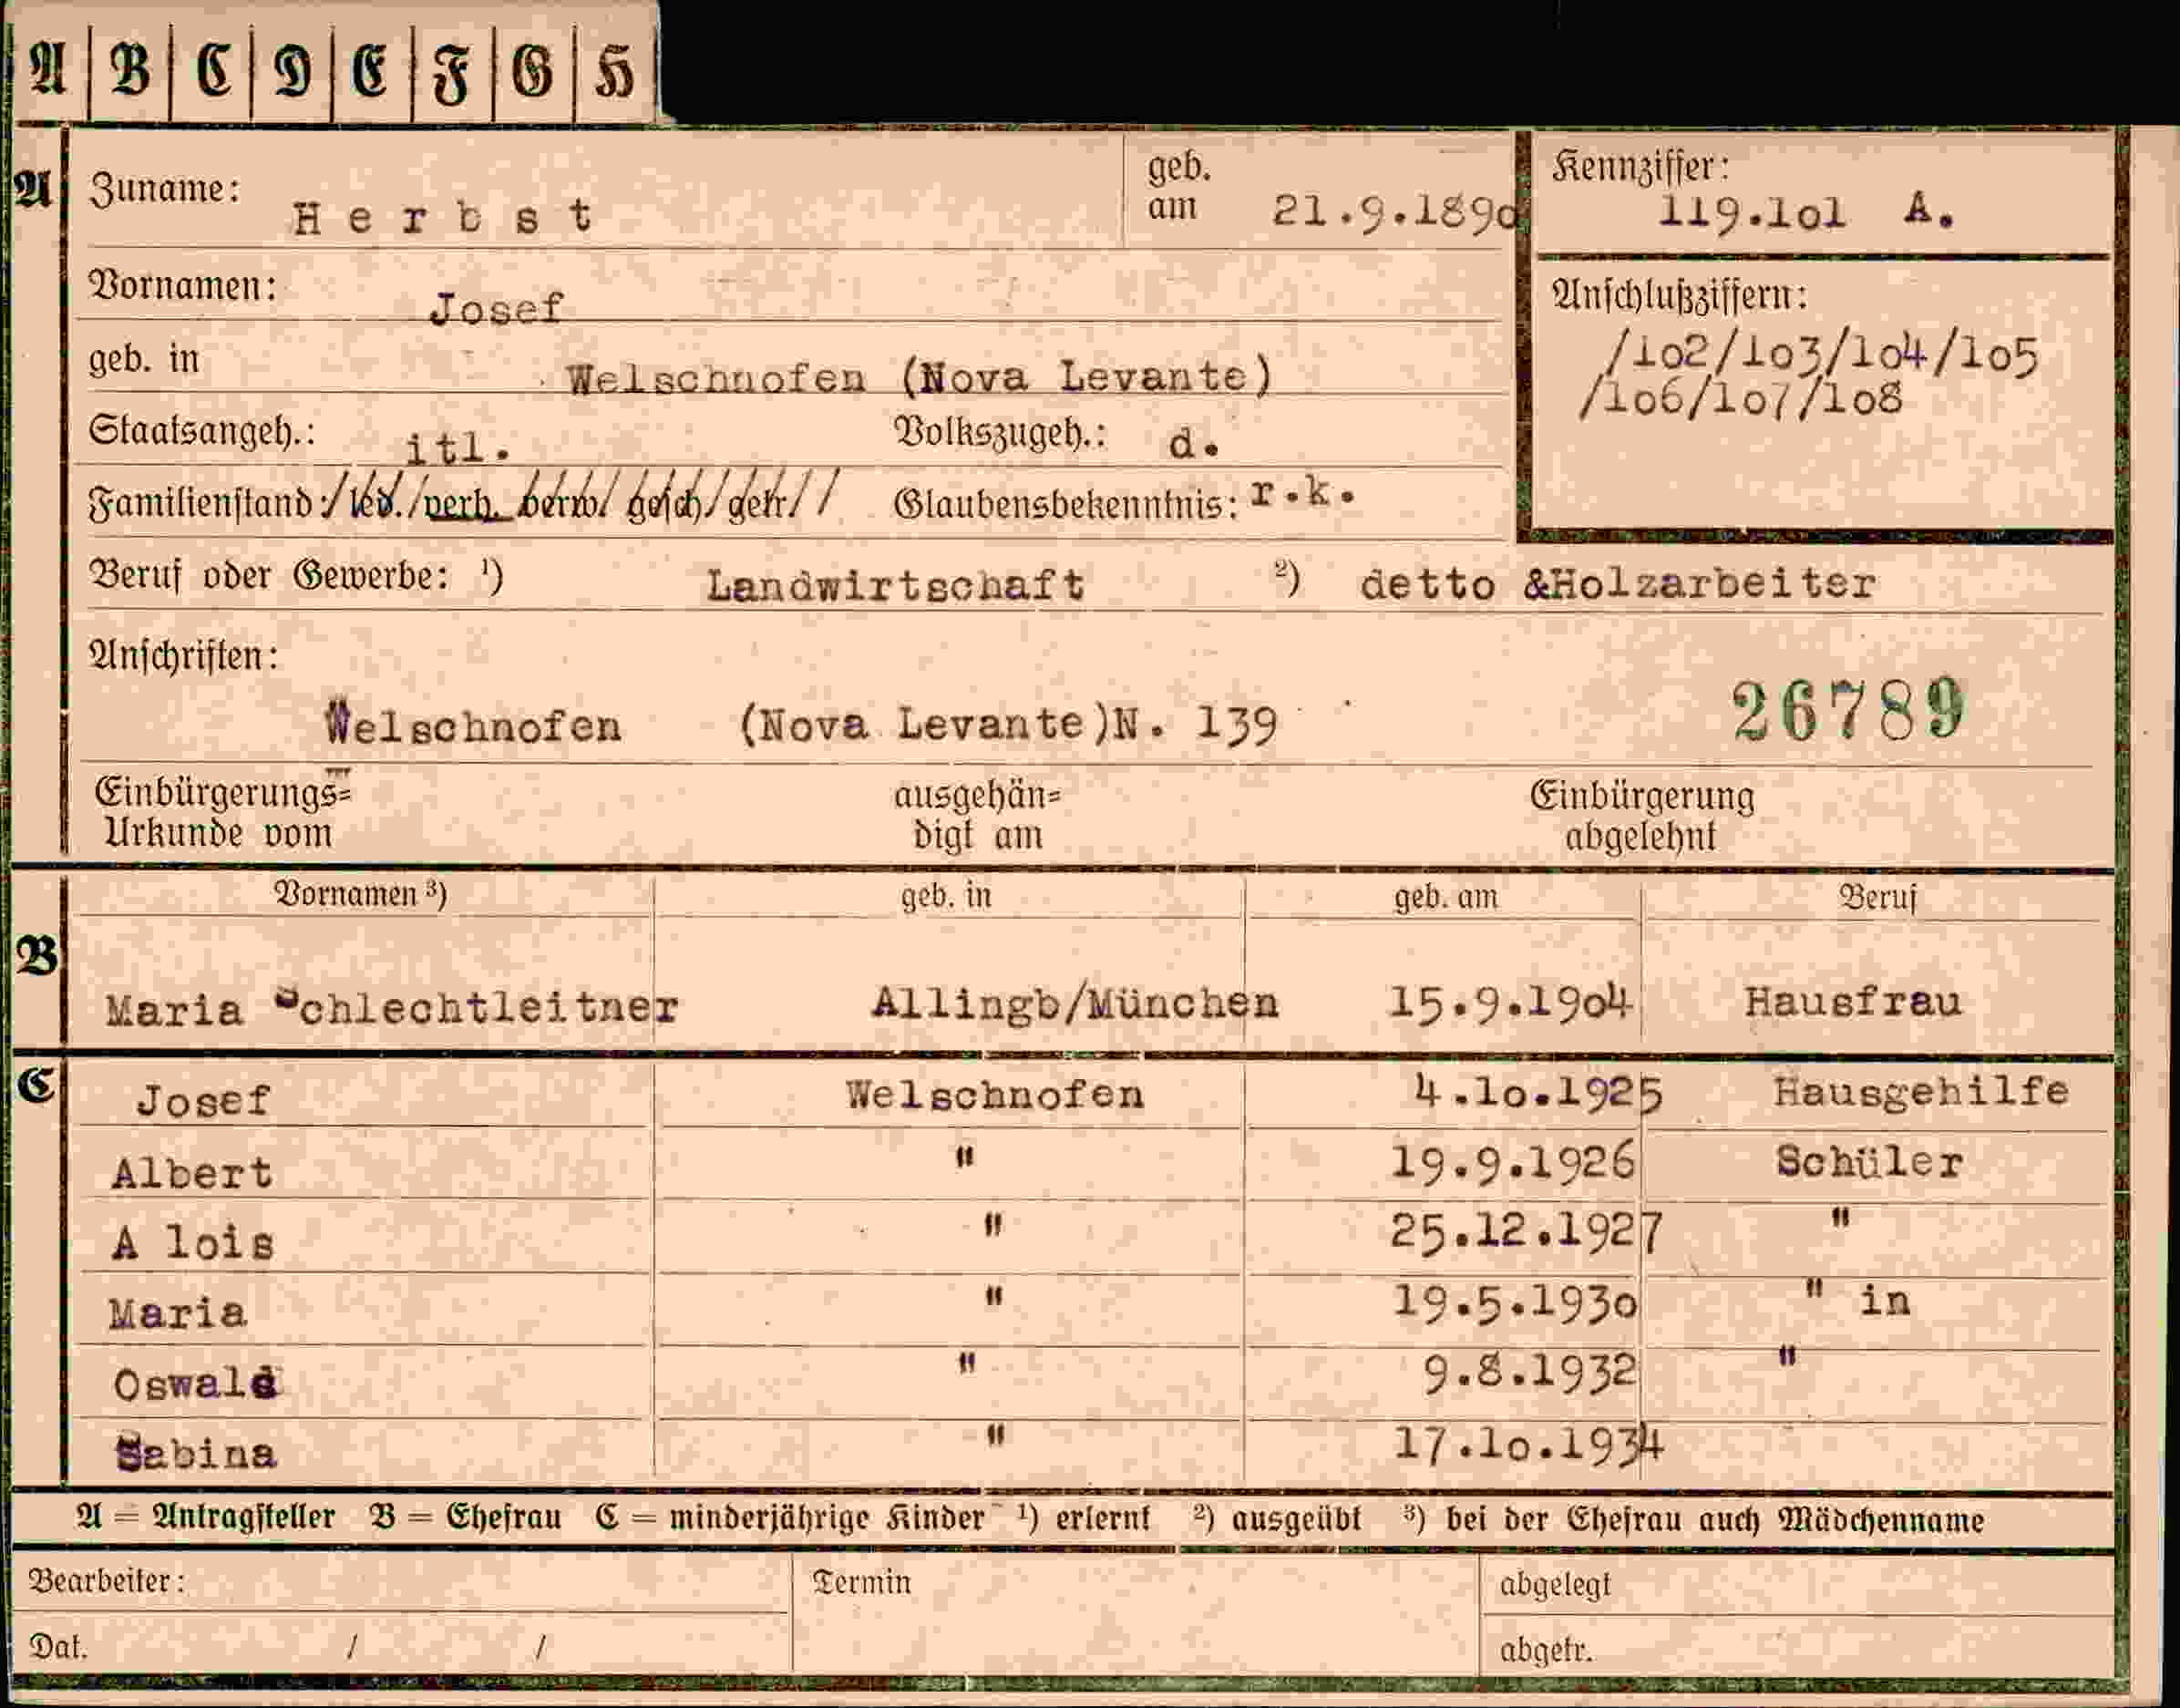 A B C D E F G H
A Zuname: Herbst geb. am 21.9.1890 Kennziffer: 119.101 A.
Vornamen: Josef Anschlußziffern:
/102/103/104/105
/106/107/108
geb. in Welschnofen (Nova Levante)
Staatsangeh.: itl. Volkszugeh.: d.
Familienstand: /led./verh. verw/ gesch/getr// Glaubensbekenntnis: r.k.
Beruf oder Gewerbe: ¹) Landwirtschaft ²) detto &Holzarbeiter
Anschriften:
Welschnofen (Nova Levante)N. 139 26789
Einbürgerungs= ausgehän= Einbürgerung
Urkunde vom digt am abgelehnt
Vornamen ³) geb. in geb. am Beruf
B
Maria Schlechtleitner Allingb/München 15.9.1904 Hausfrau
C Josef Welschnofen 4.10.1925 Hausgehilfe
Albert " 19.9.1926 Schüler
A lois " 25.12.1927 "
Maria " 19.5.1930 " in
Oswald " 9.8.1932 "
Sabina " 17.10.1934
A = Antragsteller B = Ehefrau C = minderjährige Kinder ¹) erlernt ²) ausgeübt ³) bei der Ehefrau auch Mädchenname
Bearbeiter: Termin abgelegt
Dat. / / abgetr.